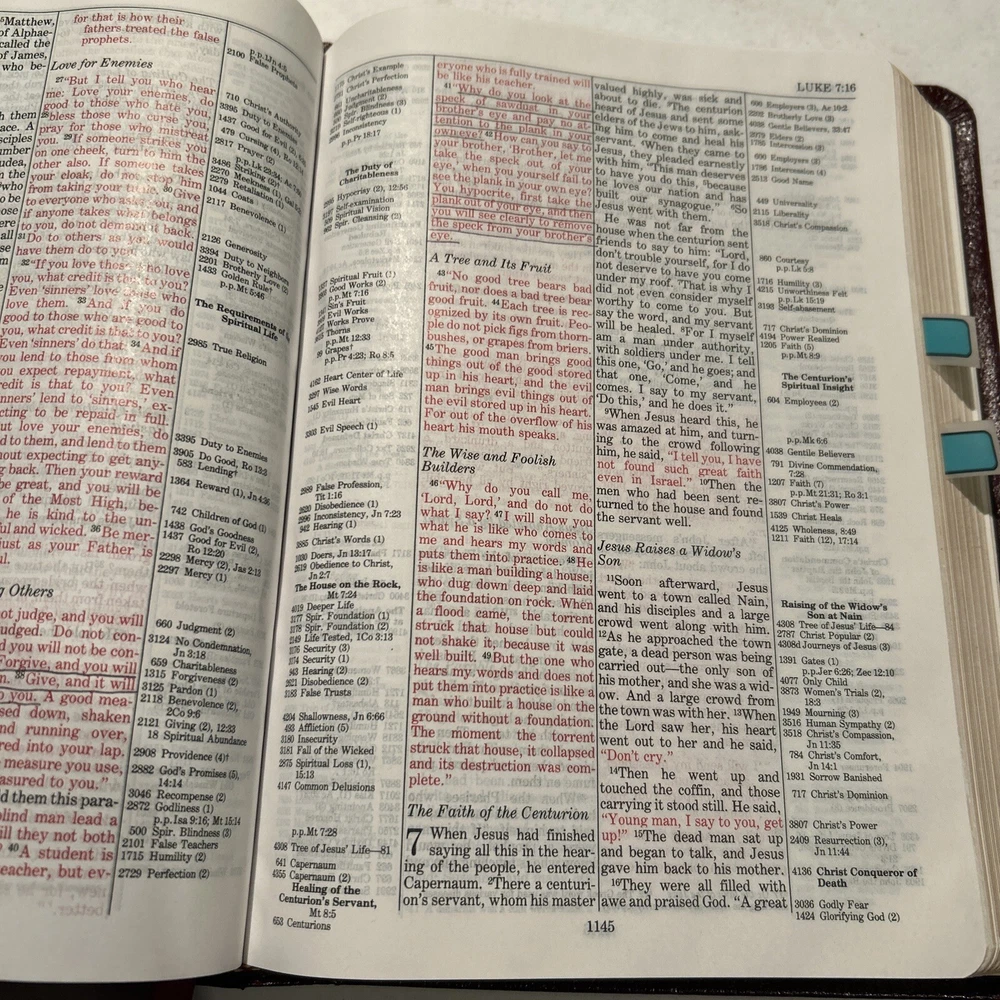 Matthew,
of Alphae-
called the
of James,
who be-
for that is how their
fathers treated the false
prophets.
Love for Enemies
27"But I tell you who hear
me: Love your enemies, do
good to those who hate you,
28bless those who curse you,
pray for those who mistreat
you. 29If someone strikes you
on one cheek, turn to him the
other also. If someone takes
your cloak, do not stop him
from taking your tunic. 30Give
to everyone who asks you, and
if anyone takes what belongs
to you, do not demand it back.
31Do to others as you would
have them do to you.
32"If you love those who love
you, what credit is that to you?
Even 'sinners' love those who
love them. 33And if you do
good to those who are good to
you, what credit is that to you?
Even 'sinners' do that. 34And if
you lend to those from whom
you expect repayment, what
credit is that to you? Even
'sinners' lend to 'sinners,' ex-
pecting to be repaid in full.
But love your enemies, do
good to them, and lend to them
without expecting to get any-
thing back. Then your reward
will be great, and you will be
of the Most High, be-
he is kind to the un-
ful and wicked. 36Be mer-
just as your Father is
Others
not judge, and you will
judged. Do not con-
d you will not be con-
Forgive, and you will
38Give, and it will
you. A good mea-
sed down, shaken
nd running over,
red into your lap.
measure you use,
asured to you."
d them this para-
blind man lead a
ill they not both
40A student is
eacher, but ev-
p.p.Jn 4:1
2100 False Prophets
710 Christ's Authority
3395 Duty to Enemies
1437 Good for Evil (2)
479 Cursing (4)
2817 Prayer (2)
3486 Striking (2)
2270 Meekness (1)
2279 Retaliation (1)
1044 Costs
2117 Benevolence (1)
2126 Generosity
3394 Duty to Neighbors
2201 Brotherly Love (2)
1433 Golden Rule†
p.p.Mt 5:46
The Requirements of
Spiritual Life
2985 True Religion
3395 Duty to Enemies
3905 Do Good, Ro 13:3
583 Lending†
1364 Reward (1), Jn 4:36
742 Children of God (1)
1438 God's Goodness
1437 Good for Evil (2),
Ro 12:20
2298 Mercy (2), Jas 2:13
2297 Mercy (1)
660 Judgment (2)
3124 No Condemnation,
Jn 3:18
659 Charitableness
1315 Forgiveness (2)
3125 Pardon (1)
2118 Benevolence (2),
2Co 9:6
2121 Giving (2), 12:33
18 Spiritual Abundance
2908 Providence (4)†
2882 God's Promises (5),
14:14
3046 Recompense (2)
2872 Godliness (1)
p.p.Isa 9:16; Mt 15:14
500 Spir. Blindness (3)
2101 False Teachers
1715 Humility (2)
2729 Perfection (2)
Christ's Example
Christ's Perfection
Uncharitableness
Judgment (2)
Spir. Blindness (3)
Self-righteous (1)
Inconsistency
p.p.Pr 18:17
The Duty of
Charitableness
Hypocrisy (2), 12:56
Self-examination
Spiritual Vision
Spir. Cleansing (2)
Spiritual Fruit (1)
Good Works (2)
p.p.Mt 7:16
Sin's Fruit
Evil Works
Works Prove
Thorns
p.p.Mt 12:33
Grapes†
p.p.Pr 4:23; Ro 8:5
4162 Heart Center of Life
Wise Words
Evil Heart
Evil Speech (1)
False Profession,
Tit 1:16
2620 Disobedience (1)
2996 Inconsistency, Jn 7:23
942 Hearing (1)
3885 Christ's Words (1)
1030 Doers, Jn 13:17
2619 Obedience to Christ,
Jn 2:7
The House on the Rock,
Mt 7:24
4019 Deeper Life
3177 Spir. Foundation (1)
3178 Spir. Foundatio (2)
2149 Life Tested, 1Co 3:13
3176 Security (3)
3174 Security (1)
943 Hearing (2)
2621 Disobedience (2)
3183 False Trusts
4204 Shallowness, Jn 6:66
493 Affliction (5)
3180 Insecurity
3181 Fall of the Wicked
2875 Spiritual Loss (1),
15:13
4147 Common Delusions
p.p.Mt 7:28
4308 Tree of Jesus' Life—81
641 Capernaum
4355 Capernaum (2)
Healing of the
Centurion's Servant,
Mt 8:5
653 Centurions
eryone who is fully trained will
be like his teacher.
41"Why do you look at the
speck of sawdust in your
brother's eye and pay no at-
tention to the plank in your
own eye? 42How can you say to
your brother, 'Brother, let me
take the speck out of your
eye,' when you yourself fail to
see the plank in your own eye?
You hypocrite, first take the
plank out of your eye, and then
you will see clearly to remove
the speck from your brother's
eye.
A Tree and Its Fruit
43"No good tree bears bad
fruit, nor does a bad tree bear
good fruit. 44Each tree is rec-
ognized by its own fruit. Peo-
ple do not pick figs from thorn-
bushes, or grapes from briers.
45The good man brings good
things out of the good stored
up in his heart, and the evil
man brings evil things out of
the evil stored up in his heart.
For out of the overflow of his
heart his mouth speaks.
The Wise and Foolish
Builders
46"Why do you call me,
'Lord, Lord,' and do not do
what I say? 47I will show you
what he is like who comes to
me and hears my words and
puts them into practice. 48He
is like a man building a house,
who dug down deep and laid
the foundation on rock. When
a flood came, the torrent
struck that house but could
not shake it, because it was
well built. 49But the one who
hears my words and does not
put them into practice is like a
man who built a house on the
ground without a foundation.
The moment the torrent
struck that house, it collapsed
and its destruction was com-
plete."
The Faith of the Centurion
7 When Jesus had finished
saying all this in the hear-
ing of the people, he entered
Capernaum. 2There a centuri-
on's servant, whom his master
LUKE 7:16
valued highly, was sick and
about to die. 3The centurion
heard of Jesus and sent some
elders of the Jews to him, ask-
ing him to come and heal his
servant. 4When they came to
Jesus, they pleaded earnestly
with him, "This man deserves
to have you do this, 5because
he loves our nation and has
built our synagogue." 6So
Jesus went with them.
He was not far from the
house when the centurion sent
friends to say to him: "Lord,
don't trouble yourself, for I do
not deserve to have you come
under my roof. 7That is why I
did not even consider myself
worthy to come to you. But
say the word, and my servant
will be healed. 8For I myself
am a man under authority,
with soldiers under me. I tell
this one, 'Go,' and he goes; and
that one, 'Come,' and he
comes. I say to my servant,
'Do this,' and he does it."
9When Jesus heard this, he
was amazed at him, and turn-
ing to the crowd following
him, he said, "I tell you, I have
not found such great faith
even in Israel." 10Then the
men who had been sent re-
turned to the house and found
the servant well.
Jesus Raises a Widow's
Son
11Soon afterward, Jesus
went to a town called Nain,
and his disciples and a large
crowd went along with him.
12As he approached the town
gate, a dead person was being
carried out—the only son of
his mother, and she was a wid-
ow. And a large crowd from
the town was with her. 13When
the Lord saw her, his heart
went out to her and he said,
"Don't cry."
14Then he went up and
touched the coffin, and those
carrying it stood still. He said,
"Young man, I say to you, get
up!" 15The dead man sat up
and began to talk, and Jesus
gave him back to his mother.
16They were all filled with
awe and praised God. "A great
600 Employers (3), Ac 10:2
2202 Brotherly Love (3)
4038 Gentile Believers, 23:47
2079 Elders (2)
1785 Intercession (3)
600 Employers (3)
1786 Intercession (4)
2513 Good Name
449 Universality
2115 Liberality
3518 Christ's Compassion
860 Courtesy
p.p.Lk 5:8
1716 Humility (3)
4218 Unworthiness Felt
p.p.Lk 15:19
3198 Self-abasement
717 Christ's Dominion
4194 Power Realized
1205 Faith (5)
p.p.Mt 8:9
The Centurion's
Spiritual Insight
604 Employees (2)
p.p.Mk 6:6
4038 Gentile Believers
791 Divine Commendation,
7:28
1207 Faith (7)
p.p.Mt 21:31; Ro 3:1
3807 Christ's Power
1539 Christ Heals
4125 Wholeness, 8:49
1211 Faith (12), 17:14
Raising of the Widow's
Son at Nain
4308 Tree of Jesus' Life—84
2787 Christ Popular (2)
4308d Journeys of Jesus (3)
1391 Gates (1)
p.p.Jer 6:26; Zec 12:10
4077 Only Child
3873 Women's Trials (2),
18:3
1949 Mourning (3)
3516 Human Sympathy (2)
3518 Christ's Compassion,
Jn 11:35
784 Christ's Comfort,
Jn 14:1
1931 Sorrow Banished
717 Christ's Dominion
3807 Christ's Power
2409 Resurrection (3),
Jn 11:44
4136 Christ Conqueror of
Death
3036 Godly Fear
1424 Glorifying God (2)
1145